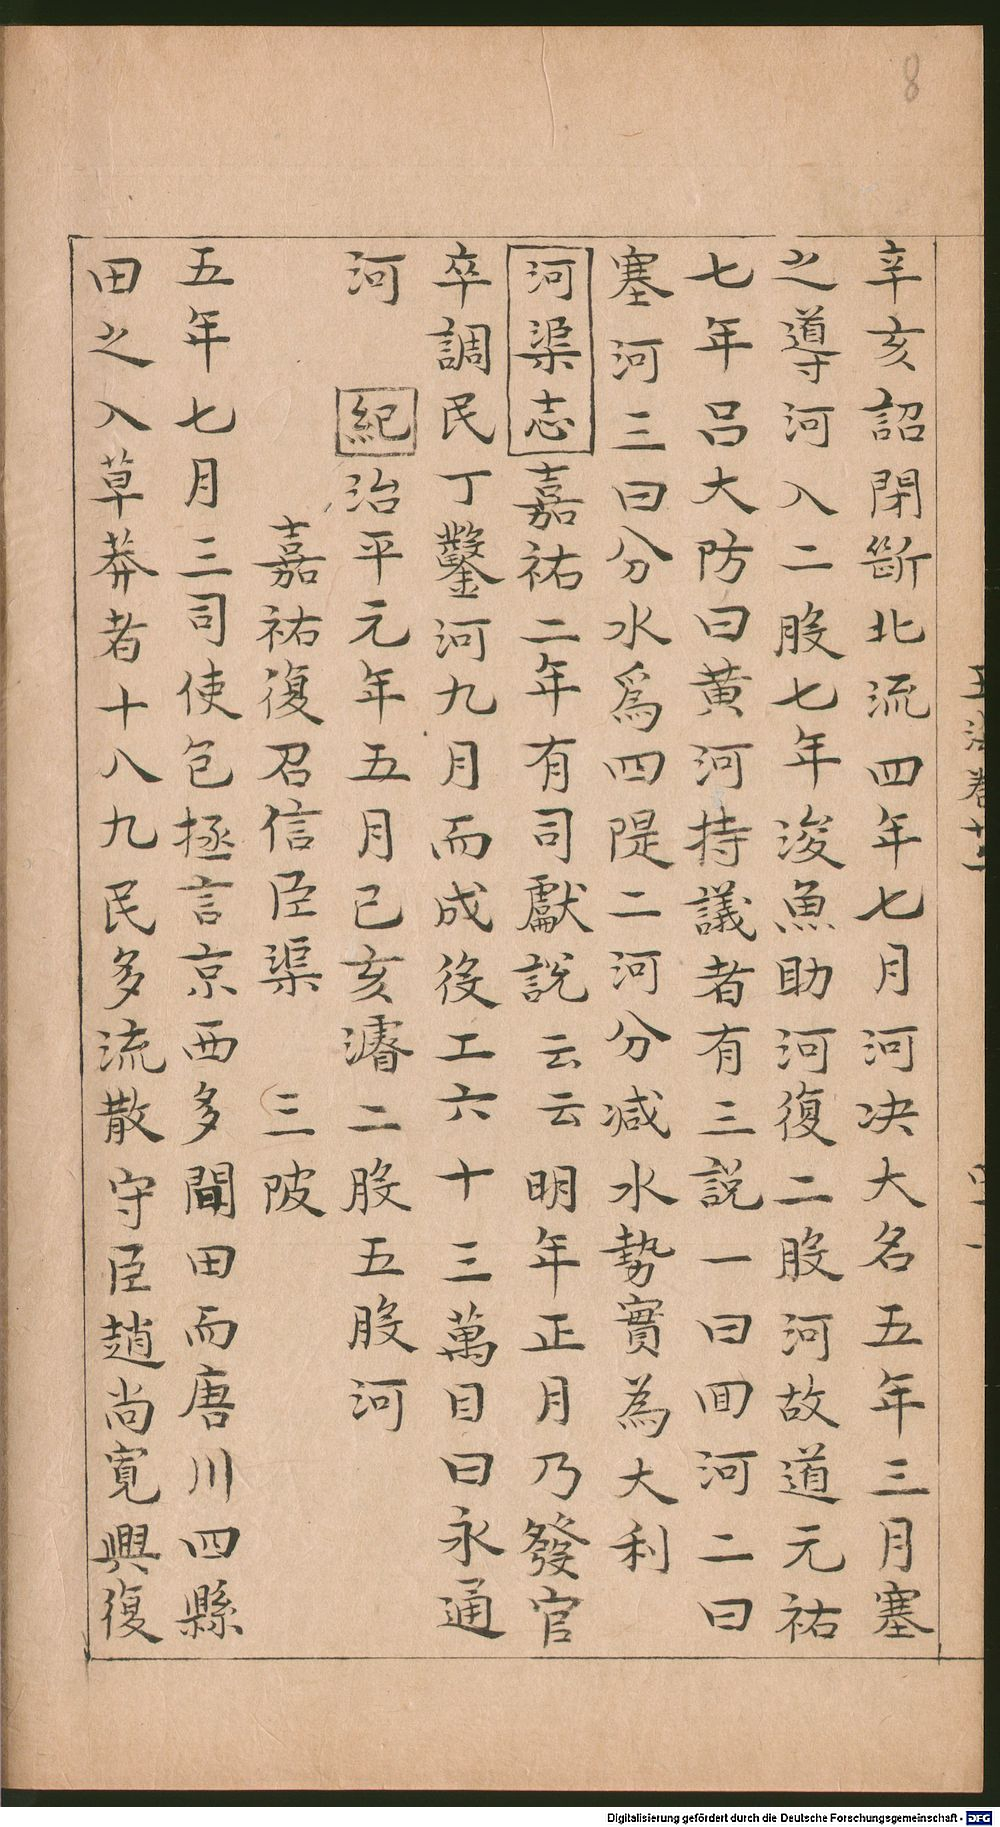 8
辛亥詔閉斷北流四年七月河決大名五年三月塞
之導河入二股七年浚魚助河復二股河故道元祐
七年呂大防曰黃河持議者有三説一曰回河二曰
塞河三曰分水爲四隄二河分減水勢實為大利
河渠志嘉祐二年有司獻説云云明年正月乃發官
卒調民丁鑿河九月而成役工六十三萬目曰永通
河 紀治平元年五月已亥濬二股五股河
嘉祐復召信臣渠 三陂
五年七月三司使包拯言京西多閒田而唐川四縣
田之入草莽者十八九民多流散守臣趙尚寬興復
Digitalisierung gefördert durch die Deutsche Forschungsgemeinschaft - DFG